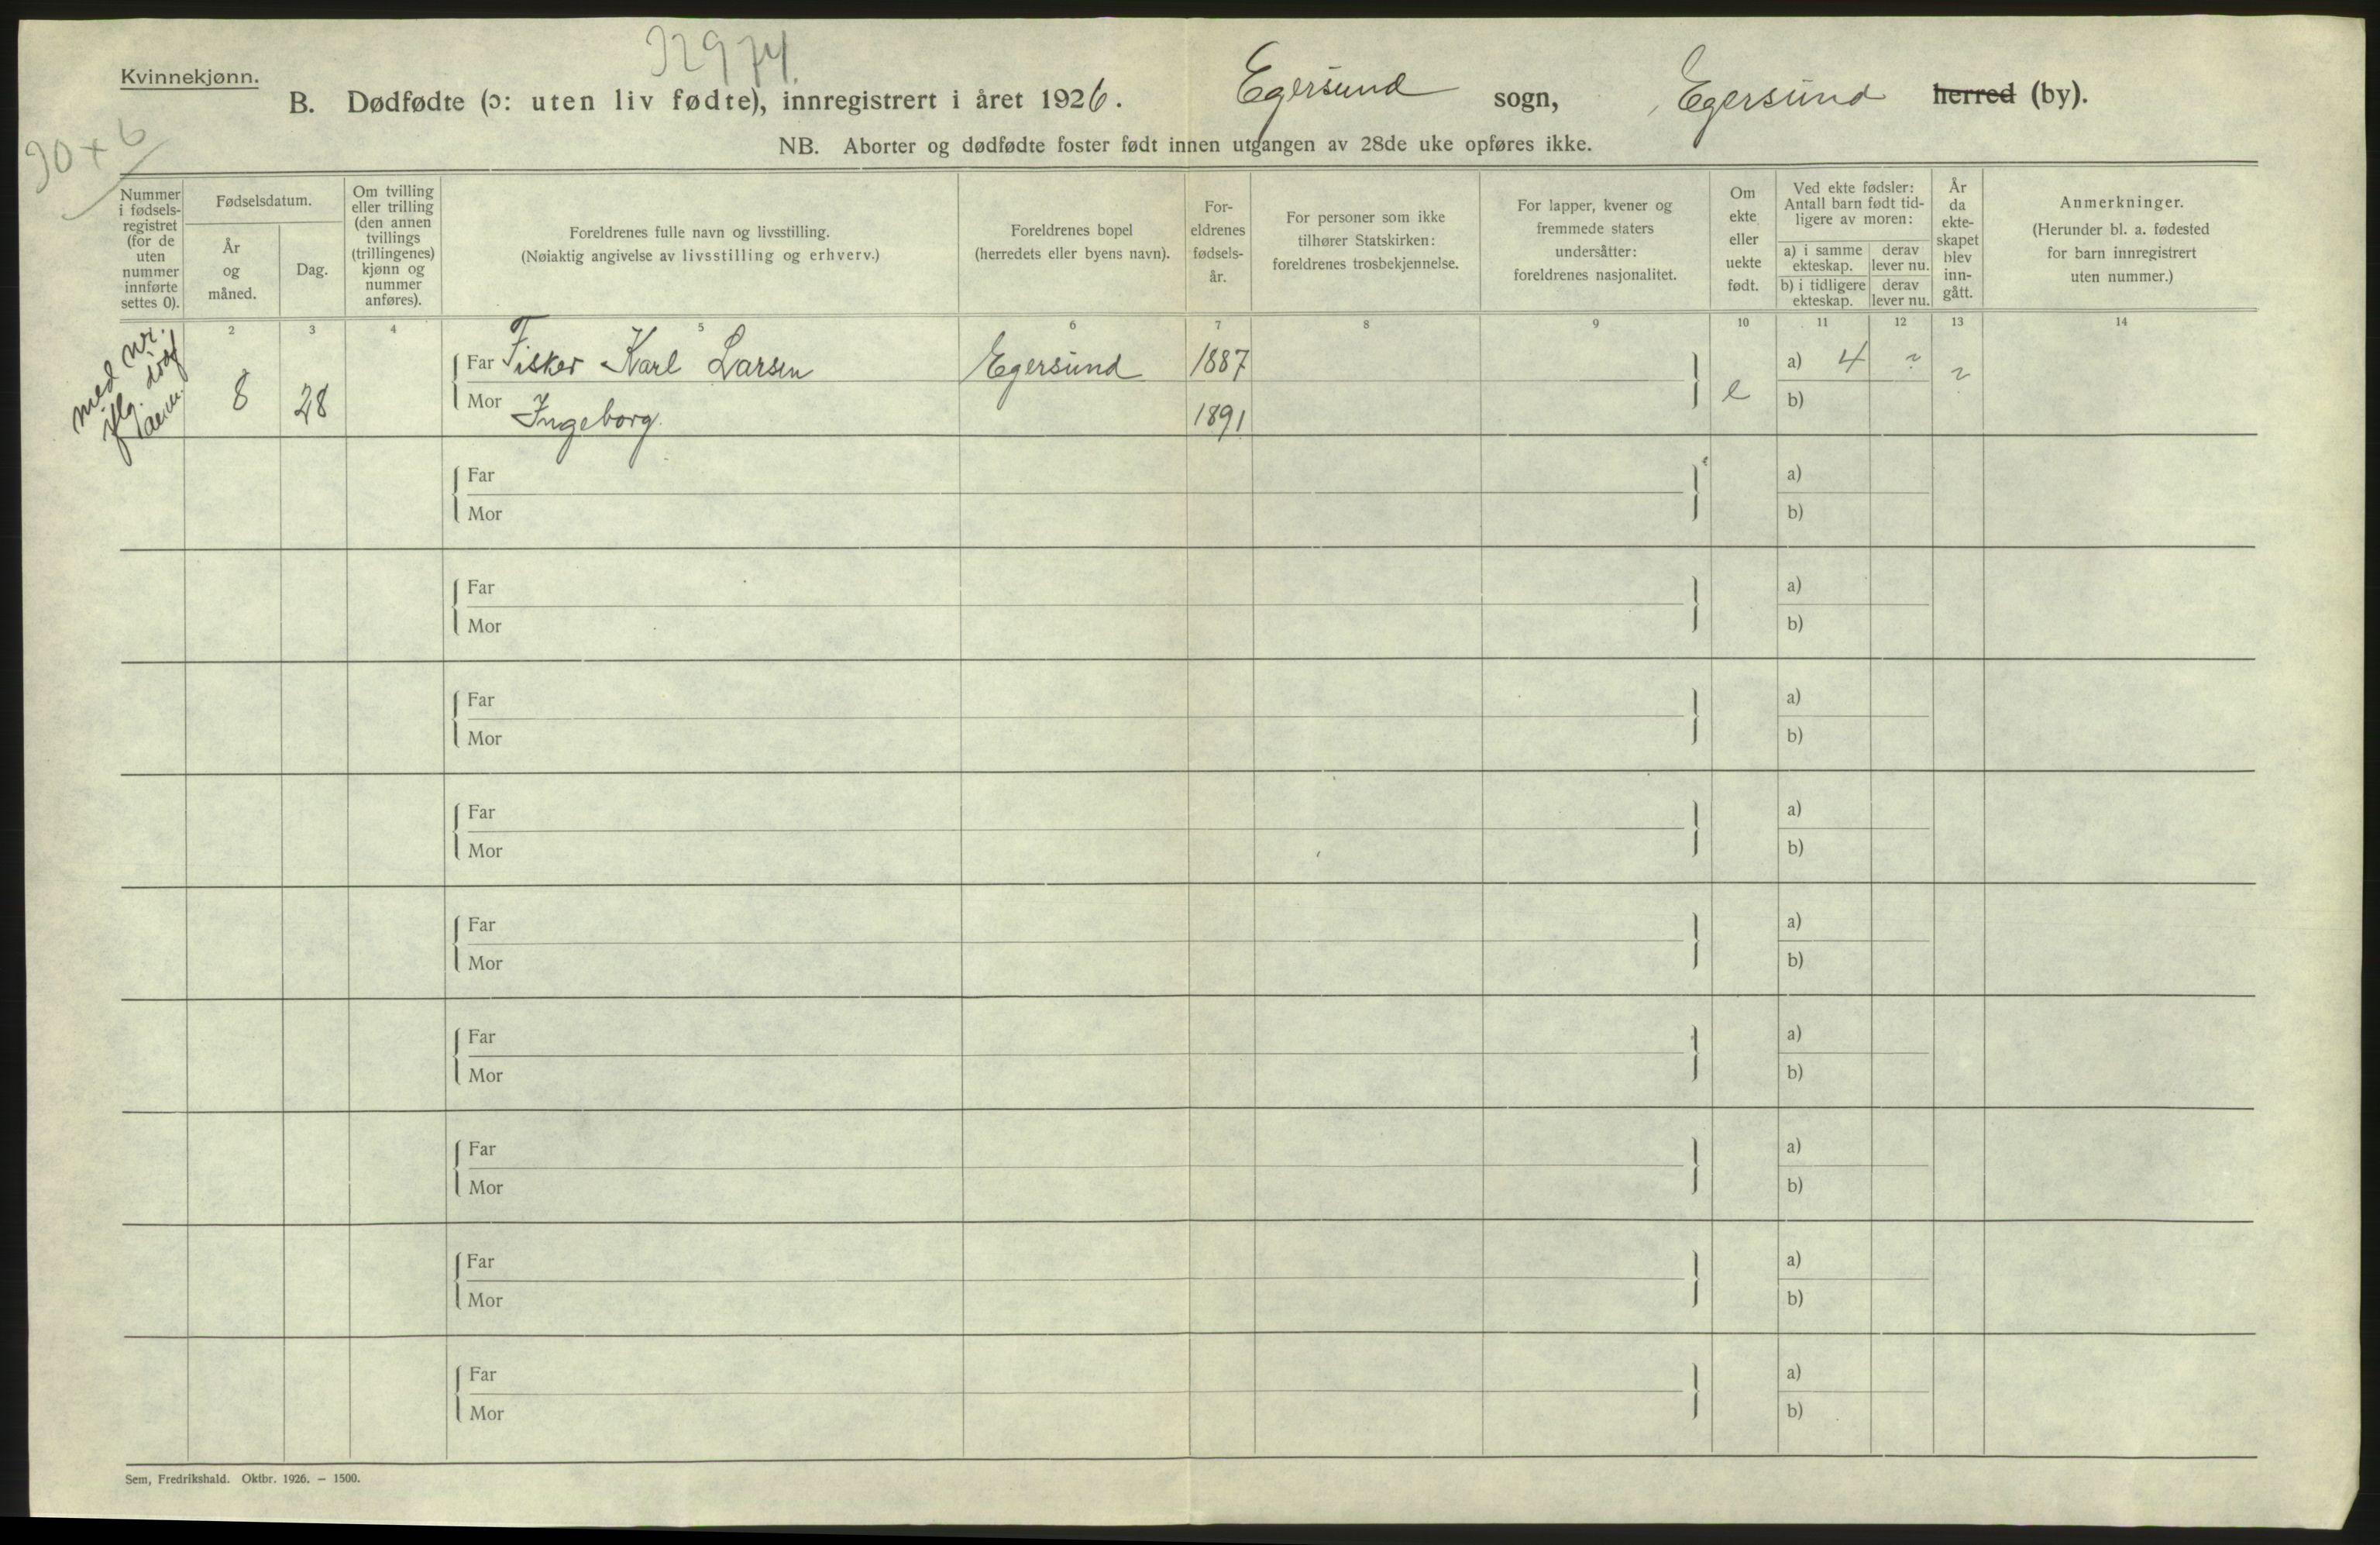 32974.
Kvinnekjønn.
B. Dødfødte (ɔ: uten liv fødte), innregistrert i året 1926. Egersund sogn, Egersund herred (by).
30 + 6
NB. Aborter og dødfødte foster født innen utgangen av 28de uke opføres ikke.
Nummer
i fødsels-
registret
(for de
uten
nummer
innførte
settes 0).
Fødselsdatum.
År
og
måned.
Dag.
Om tvilling
eller trilling
(den annen
tvillings
(trillingenes)
kjønn og
nummer
anføres).
Foreldrenes fulle navn og livsstilling.
(Nøiaktig angivelse av livsstilling og erhverv.)
Foreldrenes bopel
(herredets eller byens navn).
For-
eldrenes
fødsels-
år.
For personer som ikke
tilhører Statskirken:
foreldrenes trosbekjennelse.
For lapper, kvener og
fremmede staters
undersåtter:
foreldrenes nasjonalitet.
Om
ekte
eller
uekte
født.
Ved ekte fødsler:
Antall barn født tid-
ligere av moren:
a) i samme
ekteskap.
derav
lever nu.
b) i tidligere
ekteskap.
derav
lever nu.
År
da
ekte-
skapet
blev
inn-
gått.
Anmerkninger.
(Herunder bl. a. fødested
for barn innregistrert
uten nummer.)
2 3 4 5 6 7 8 9 10 11 12 13 14
med nr.
iflg.
8 28 Far Fisker Karl Larsen Egersund 1887 e a) 4 ? ?
Mor Ingeborg. 1891 b)
Far a)
Mor b)
Far a)
Mor b)
Far a)
Mor b)
Far a)
Mor b)
Far a)
Mor b)
Far a)
Mor b)
Far a)
Mor b)
Far a)
Mor b)
Far a)
Mor b)
Sem, Fredrikshald. Oktbr. 1926. — 1500.